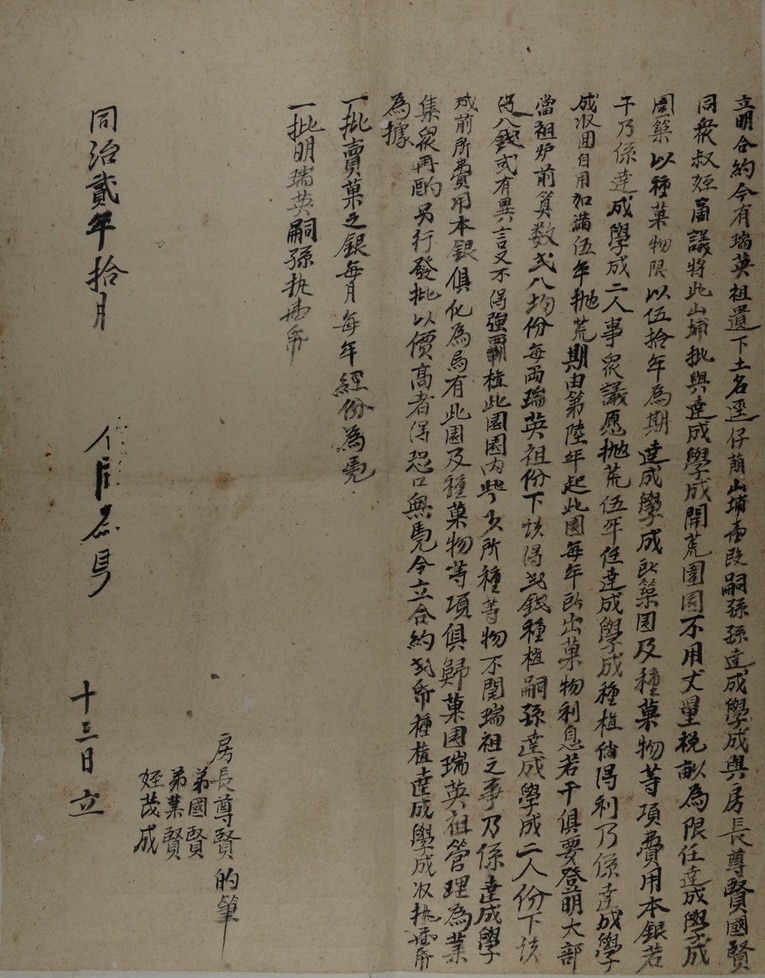 立明合約今有瑞英祖遺下土名逕仔蓢山埔壹段嗣孫孫達成學成與房長尊賢國賢
同衆叔姪啇議將此山埔批與達成學成開荒圍園不用丈量稅畝為限任達成學成
圍築以種菓物限以伍拾年為期達成學成所築园及種菓物等項費用本銀若
干乃係達成學成二人事衆議愿抛荒伍年任達成學成種植倘得利乃係達成學
成收回自用如滿伍年抛荒期由第陸年起此園每年所出菓物利息若干俱要登明大部
當祖炉前算数弍八均份每両瑞英祖份下該得弍錢種植嗣孫達成學成二人份下該
得八錢或有異言又不得強覇植此園園内些少所種等物不関瑞祖之事乃係達成學
成前所費用本銀俱化為烏有此园及種菓物等項俱歸菓园瑞英祖管理為業
集衆再酌另行發批以價高者得恐口無憑今立合約弍帋種植達成學成收执壹帋
為據
一批賣菓之銀每月每年經份為憑
一批明瑞英嗣孫执壹帋
房長尊賢的筆
弟國賢
弟業賢
姪茂成
同治貳年拾月
十三日立